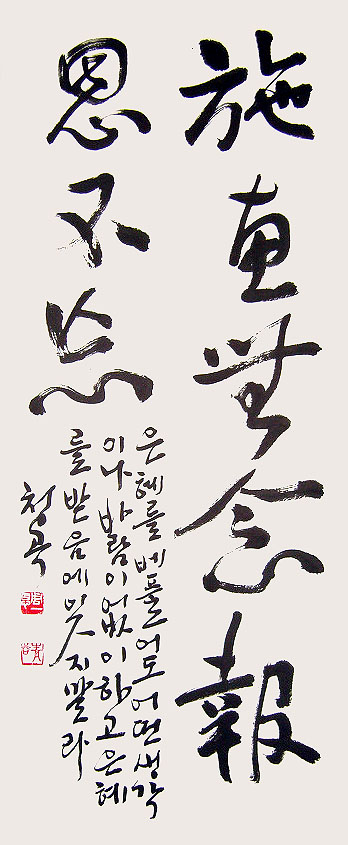 施惠無念報
恩不忘
은혜를 베풀어도 어떤 생각
이나 바람이 없이 하고 은혜
를 받음에 잊지 말라
청곡